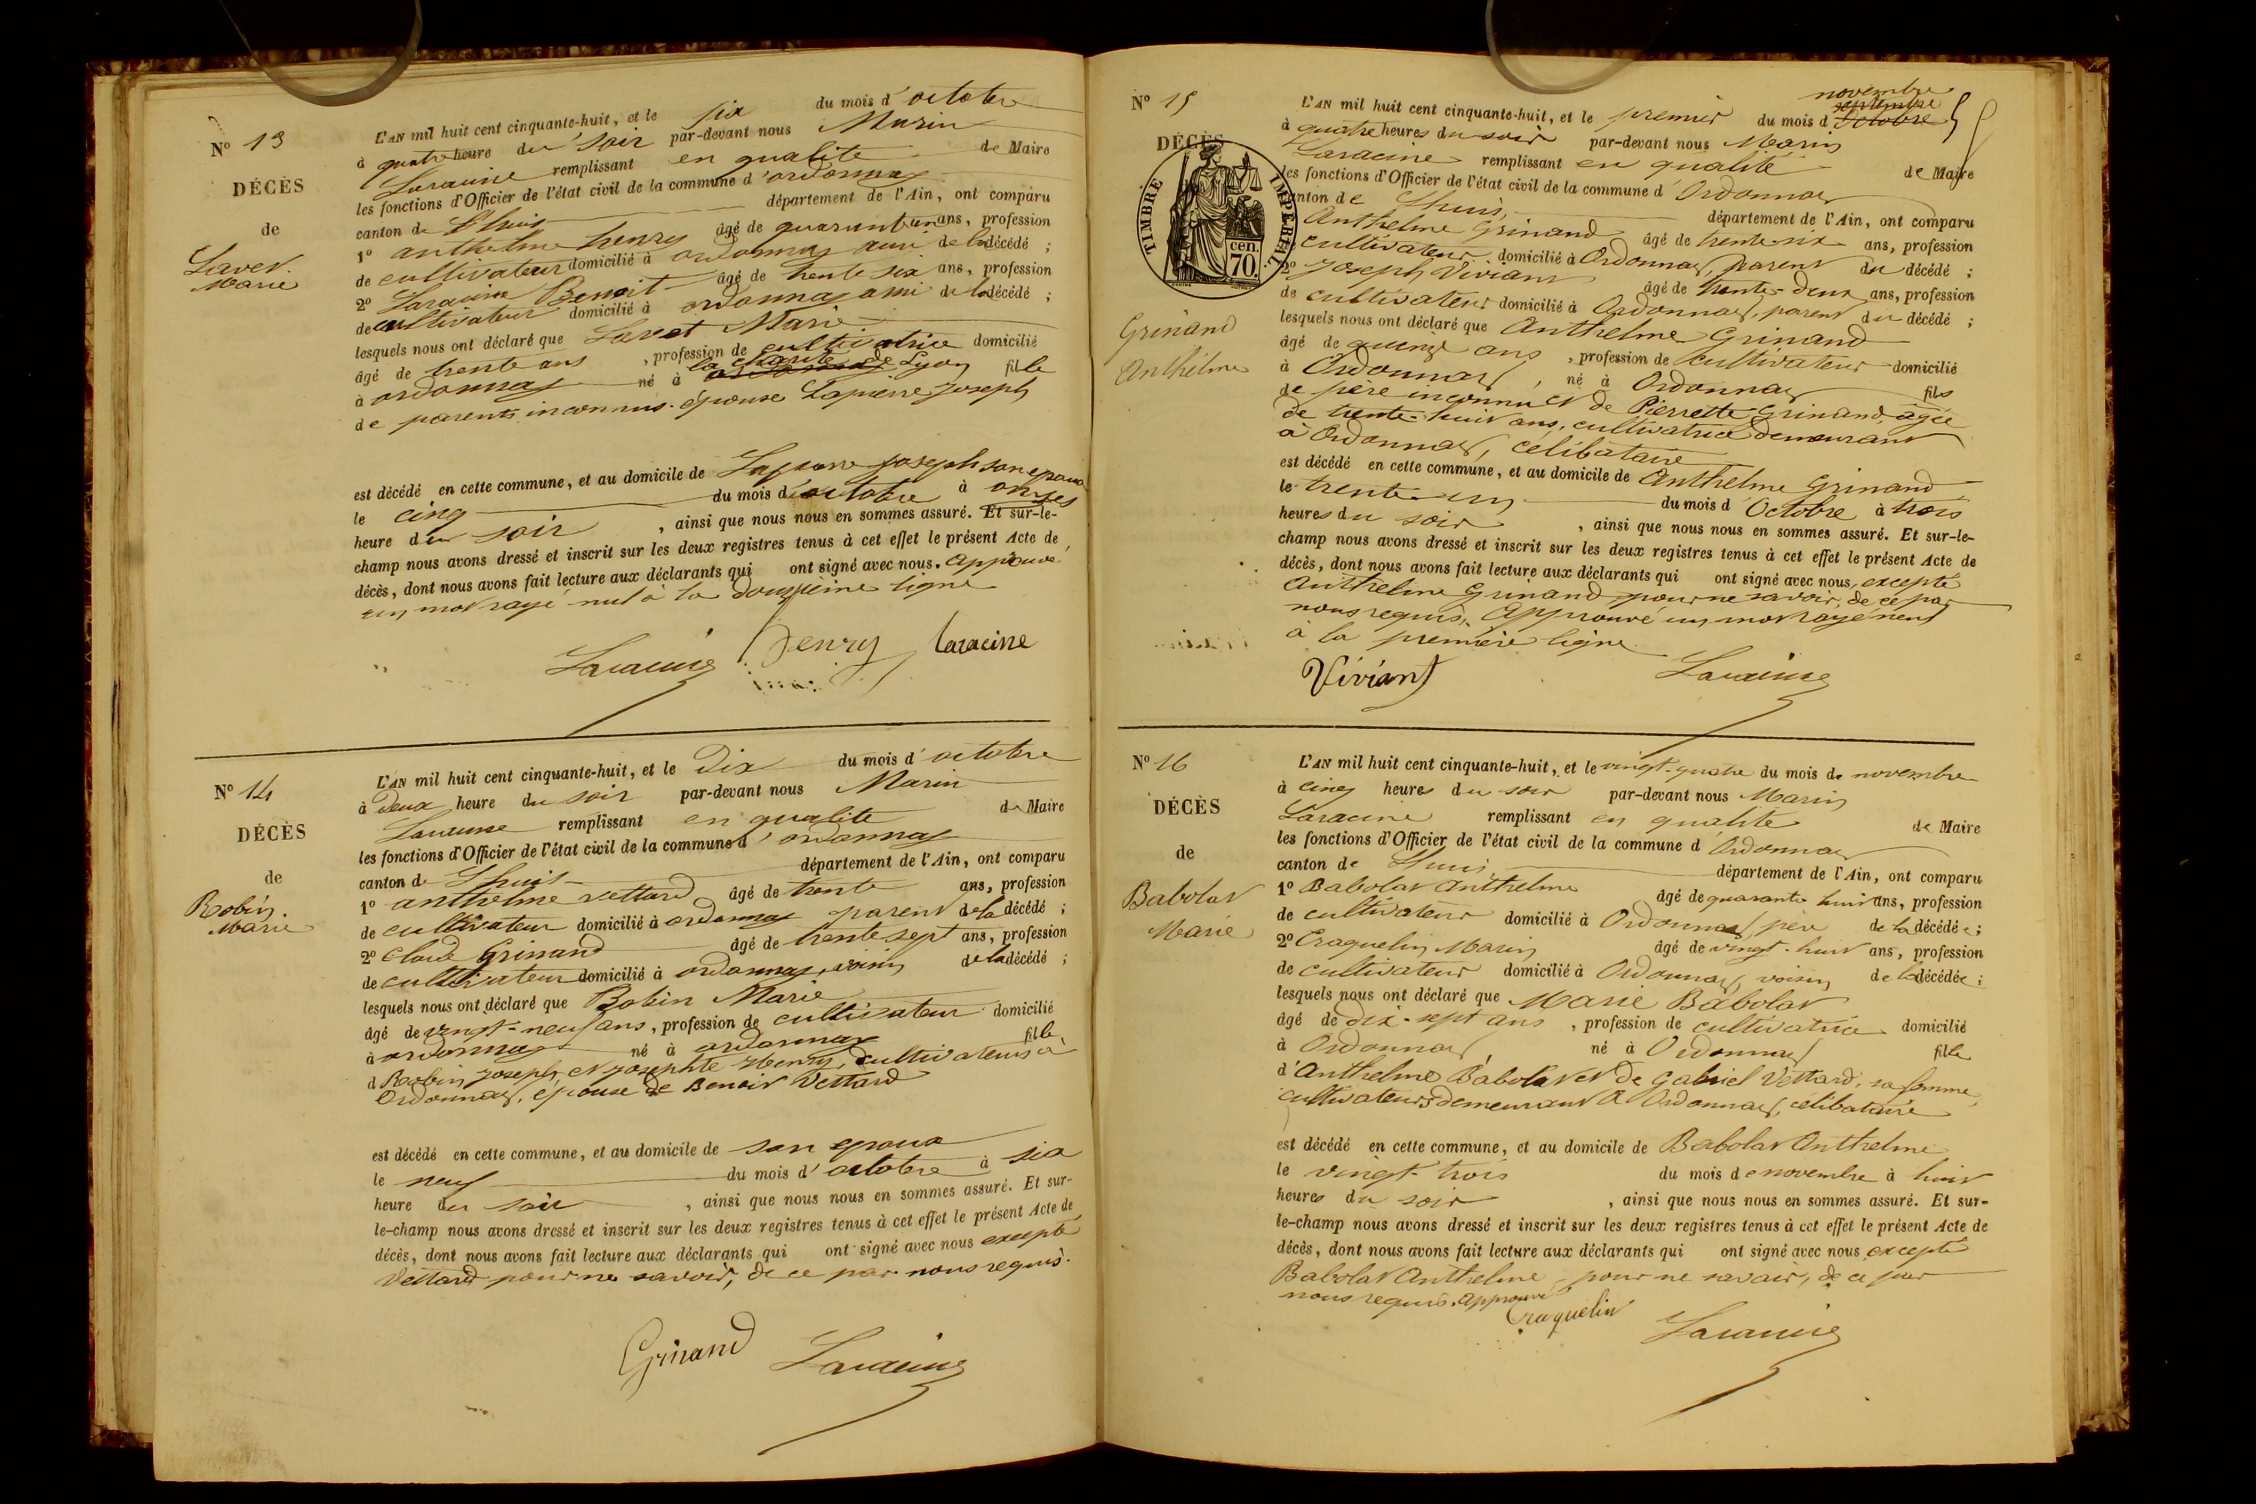 N° 13
DÉCÈS
de
Lavet.
Marie
L'AN mil huit cent cinquante-huit, et le six du mois d'octobre
à quatre heure du soir par-devant nous Marin
Laracine remplissant en qualité de Maire
les fonctions d'Officier de l'état civil de la commune d'ordonnas
canton de Lhuis département de l'Ain, ont comparu
1° anthelme henry âgé de quarante un ans, profession
de cultivateur domicilié à ordonnas ami de la décédé ;
2° Laracine Benoit âgé de trente six ans, profession
de cultivateur domicilié à ordonnas ami de la décédé ;
lesquels nous ont déclaré que Lavet Marie
âgé de trente ans, profession de cultivatrice domicilié
à ordonnas né à la charité de Lyon fille
de parents inconnus. épouse Lapierre Joseph
est décédé en cette commune, et au domicile de Lapierre Joseph son epoux
le cinq du mois d'octobre à onzes
heure du soir, ainsi que nous nous en sommes assuré. Et sur-le-
champ nous avons dressé et inscrit sur les deux registres tenus à cet effet le présent Acte de
décès, dont nous avons fait lecture aux déclarants qui ont signé avec nous. approuvé
un mot rayé nul à la douzième ligne
Laracine henry Laracine
N° 14
DÉCÈS
de
Robin.
Marie
L'AN mil huit cent cinquante-huit, et le Dix du mois d'octobre
à Deux heure du soir par-devant nous Marin
Laracine remplissant en qualité de Maire
les fonctions d'Officier de l'état civil de la commune d'ordonnas
canton de Lhuis département de l'Ain, ont comparu
1° anthelme vettard âgé de trente ans, profession
de cultivateur domicilié à ordonnas parent de la décédé ;
2° Claude Grinand âgé de trente sept ans, profession
de cultivateur domicilié à ordonnas, voisin de la décédé ;
lesquels nous ont déclaré que Robin Marie
âgé de vingt-neuf ans, profession de cultivateur domicilié
à ordonnas né à ordonnas fille
d Roobin Joseph et Josephte Henry, cultivateurs à
Ordonnas, épouse de Benoit Vettard
est décédé en cette commune, et au domicile de son epoux
le neuf du mois d'octobre à six
heure du soir, ainsi que nous nous en sommes assuré. Et sur-
le-champ nous avons dressé et inscrit sur les deux registres tenus à cet effet le présent Acte de
décès, dont nous avons fait lecture aux déclarants qui ont signé avec nous excepté
Vettard pour ne savoir, de ce par nous requis.
Grinand Laracine
N° 15
DÉCÈS
TIMBRE IMPERIAL
cen.
70.
Grinand
Anthelme
novembre
septembre
L'AN mil huit cent cinquante-huit, et le premier du mois d'Octobre
à quatre heures du soir par-devant nous Marin
Laracine remplissant en qualité de Maire
les fonctions d'Officier de l'état civil de la commune d'Ordonnas
canton de Lhuis, département de l'Ain, ont comparu
Anthelme Grinand âgé de trente-six ans, profession
cultivateur domicilié à Ordonnas, parent du décédé ;
2° Joseph Viviant âgé de trente-deux ans, profession
de cultivateur domicilié à Ordonnas, parent du décédé ;
lesquels nous ont déclaré que Anthelme Grinand
âgé de quinze ans, profession de cultivateur domicilié
à Ordonnas, né à Ordonnas fils
de père inconnu et de Pierrette Grinand, agée
de trente-huit ans, cultivatrice demeurant
à Ordonnas, célibataire
est décédé en cette commune, et au domicile de Anthelme Grinand
le trente-un du mois d'Octobre à trois
heures du soir, ainsi que nous nous en sommes assuré. Et sur-le-
champ nous avons dressé et inscrit sur les deux registres tenus à cet effet le présent Acte de
décès, dont nous avons fait lecture aux déclarants qui ont signé avec nous, excepté
Anthelme Grinand pour ne savoir, de ce par
nous requis, Approuvé un mot rayé
à la première ligne
Viviant Laracine
N° 16
DÉCÈS
de
Babolat
Marie
L'AN mil huit cent cinquante-huit, et le vingt-quatre du mois de novembre
à cinq heures du soir par-devant nous Marin
Laracine remplissant en qualité de Maire
les fonctions d'Officier de l'état civil de la commune d'Ordonnas
canton de Lhuis, département de l'Ain, ont comparu
1° Babolat Anthelme âgé de quarante huit ans, profession
de cultivateur domicilié à Ordonnas, père de la décédée ;
2° Craquelin Marin âgé de vingt-huit ans, profession
de cultivateur domicilié à Ordonnas, voisin de la décédée ;
lesquels nous ont déclaré que Marie Babolat
âgé de dix-sept ans, profession de cultivatrice domicilié
à Ordonnas, né à Ordonnas fille
d'Anthelme Babolat et de Gabriel Vettard, sa femme,
cultivateurs demeurant à Ordonnas, célibataire
est décédé en cette commune, et au domicile de Babolat Anthelme
le vingt-trois du mois de novembre à huit
heures du soir, ainsi que nous nous en sommes assuré. Et sur-
le-champ nous avons dressé et inscrit sur les deux registres tenus à cet effet le présent Acte de
décès, dont nous avons fait lecture aux déclarants qui ont signé avec nous excepté
Babolat Anthelme pour ne savoir, de ce par
nous requis. Approuvé
Craquelin Laracine